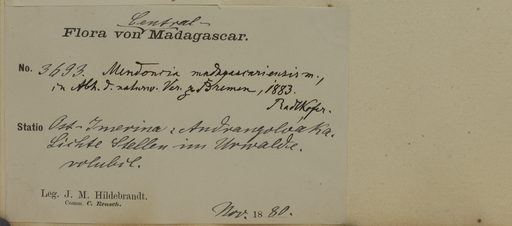 Central-
Flora von Madagascar.
No. 3693. Mendoncia madagascariensis m.,
in Abh. d. naturw. Ver. z. Bremen, 1883.
Radlkofer.
Statio Ost-Imerina: Andrangoloaka.
Lichte Stellen im Urwalde.
volubil.
Leg. J. M. Hildebrandt.
Comm. C. Rensch.
Nov. 1880.